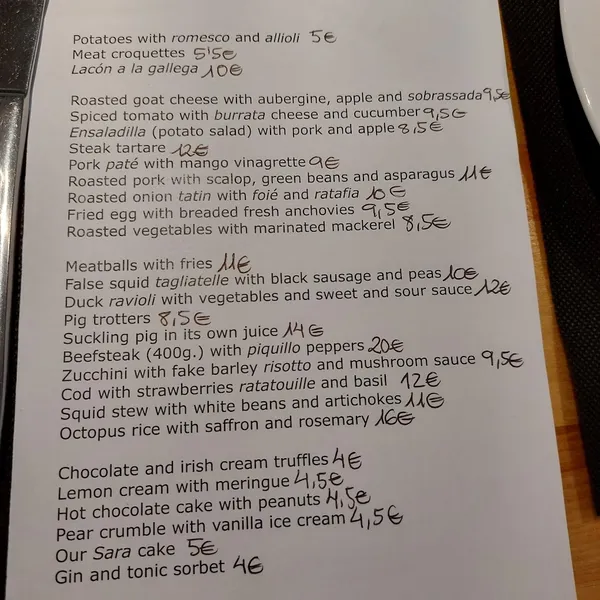 Potatoes with romesco and allioli 5€
Meat croquettes 5'5€
Lacón a la gallega 10€
Roasted goat cheese with aubergine, apple and sobrassada 9,5€
Spiced tomato with burrata cheese and cucumber 9,5€
Ensaladilla (potato salad) with pork and apple 8,5€
Steak tartare 12€
Pork paté with mango vinagrette 9€
Roasted pork with scalop, green beans and asparagus 11€
Roasted onion tatin with foié and ratafia 10€
Fried egg with breaded fresh anchovies 9,5€
Roasted vegetables with marinated mackerel 8,5€
Meatballs with fries 11€
False squid tagliatelle with black sausage and peas 10€
Duck ravioli with vegetables and sweet and sour sauce 12€
Pig trotters 8,5€
Suckling pig in its own juice 14€
Beefsteak (400g.) with piquillo peppers 20€
Zucchini with fake barley risotto and mushroom sauce 9,5€
Cod with strawberries ratatouille and basil 12€
Squid stew with white beans and artichokes 11€
Octopus rice with saffron and rosemary 16€
Chocolate and irish cream truffles 4€
Lemon cream with meringue 4,5€
Hot chocolate cake with peanuts 4,5€
Pear crumble with vanilla ice cream 4,5€
Our Sara cake 5€
Gin and tonic sorbet 4€